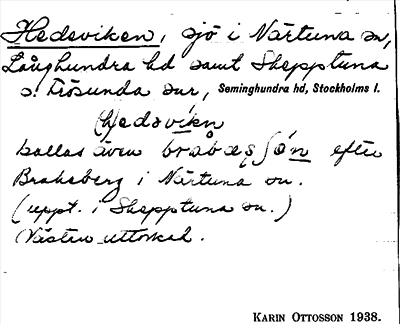 Hedeviken, sjö i Närtuna sn,
Långhundra hd samt Skepptuna
o. Frösunda snr, Seminghundra hd, Stockholms l.
(h)edəvíkən
kallas även bråbəʂʃøn efter
Braheberg i Närtuna sn.
(uppt. i Skepptuna sn.)
Nästan uttorkad.
KARIN OTTOSSON 1938.